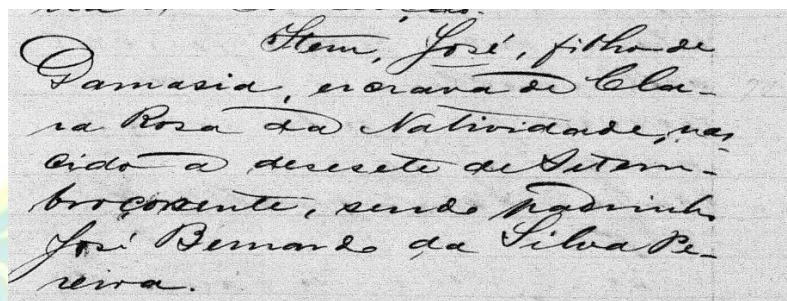 Item, José, filho de
Damasia, escrava de Cla-
ra Rosa da Natividade, nas
cido a desesete de Setem-
bro corrente, sendo padrinho
José Bernardo da Silva Pe-
reira.